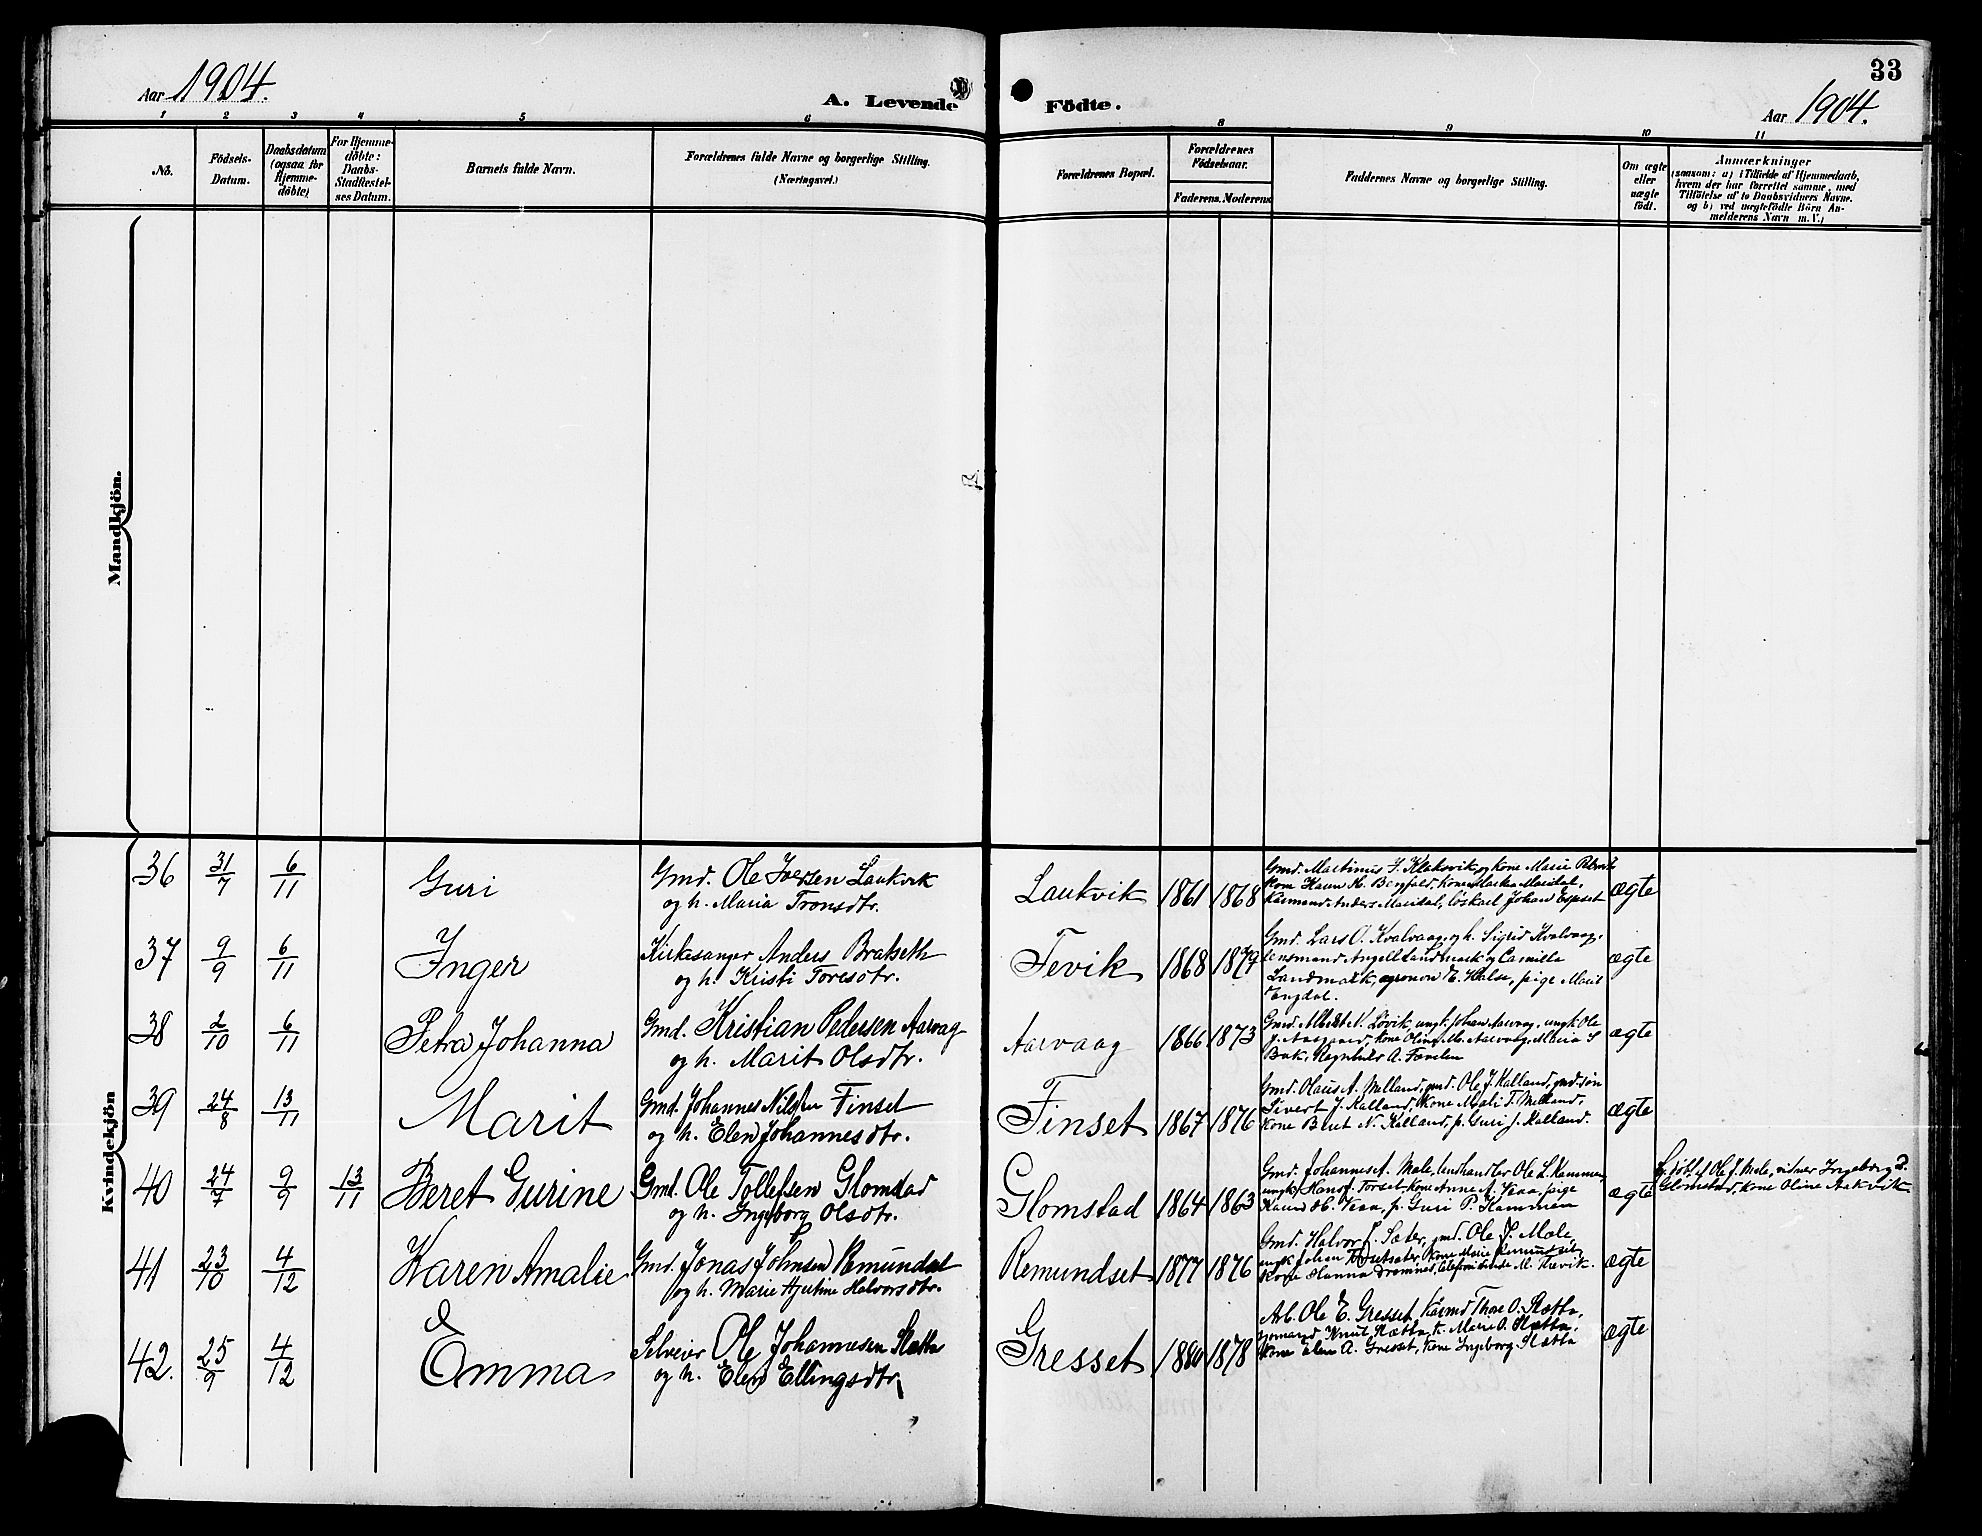 Aar 1904.
A. Levende Födte.
33
Aar 1904.
1 2 3 4 5 6 8 9 10 11
No.
Födsels-
Datum.
Daabsdatum
(ogsaa for
Hjemme-
döbte)
For Hjemme-
döbte:
Daabs-
Stadfæstel-
ses Datum.
Barnets fulde Navn.
Forældrenes fulde Navne og borgerlige Stilling.
(Næringsvei.)
Forældrenes Bopæl.
Forældrenes
Födselsaar.
Faderens. Moderens
Faddernes Navne og borgerlige Stilling.
Om ægte
eller
uægte
födt.
Anmærkninger
(saasom: a) i Tilfælde af Hjemmedaab,
hvem der har forrettet samme, med
Tilföielse af to Daabsvidners Navne.
og b) ved uægtefödte Börn An-
melderens Navn m. V.)
Mandkjön.
Kvindekjön
36 31/7 6/11 Guri
Gmd. Ole Iversen Laukvik
og h. Maria Tronsdtr.
Laukvik 1861 1868
Gmd. Martinus J. Klakovik, og kone Marie
Kone Karen H. Bergfald, kone Martha Mardal,
Kårmand Anders Mardal, løskarl Johan Espset
ægte
37 9/9 6/11 Inger
Kirkesanger Anders Brakseth
og h. Kristi Toresdtr.
Tevik 1868 1879
Gmd. Lars O. Kvalvaag, og h. Sigrid Kvalvaag,
lensmand Angell Landmark og Camilla
Landmark, agronom E. Halse, pige Marit
Engdal.
ægte
38 2/10 6/11 Petra Johanna
Gmd. Kristian Pedersen Aarvag
og h. Marit Olsdtr.
Aarvaag 1866 1873
Gmd. Albert N. Løvik, ungk. Johan Aarvaag, ungk. Ole
J. Aasgaard, kone Oline M. Aarvaag, Maria S
Bak, Ragnhild A.
ægte
39 24/8 13/11 Marit
Gmd. Johannes Nilsen Finset
og h. Elen Johannesdtr.
Finset 1867 1876
Gmd. Olaus A. Melland, gmd. Ole J. Halland, gmd. søn
Sivert J. Halland, kone Mali T. Melland,
kone Beret N. Halland, p. Guri J. Halland.
ægte
40 24/7 9/9 13/11 Beret Gurine
Gmd. Ole Tollefsen Glomstad
og h. Ingeborg Olsdtr.
Glomstad 1864 1863
Gmd. Johannes A. Mele, landhandler Ole L. Hammen,
ungk. Hans J. Torset, kone Anne A. Vaa, pige
Karen H. Vaa, p. Guri P. Hammen
ægte
Hj. døbt af Ole J. Mele, vidner Ingeborg
Glomstad, kone Oline Aakvik.
41 23/10 4/12 Karen Amalie
Gmd. Jonas Johnsen Remundset
og h. Marie Hjertine Halvorsdtr.
Remundset 1877 1876
Gmd. Halvor L. Sæter, gmd. Ole J. Mele,
ungk. Johan Outsæter, kone Marie Remundset,
kone Hanna Dromnes, M. Rævik.
ægte
42. 25/9 4/12 Emma
Selveier Ole Johannesen Slætta
og h. Elen Ellingsdtr.
Gresset 1880 1878
Arb. Ole E. Gresset, Kårmd Thore O. Slætta,
Knut Slætta, k. Mari O. Slætta,
kone Elen A. Gresset, kone Ingeborg Slætta
ægte